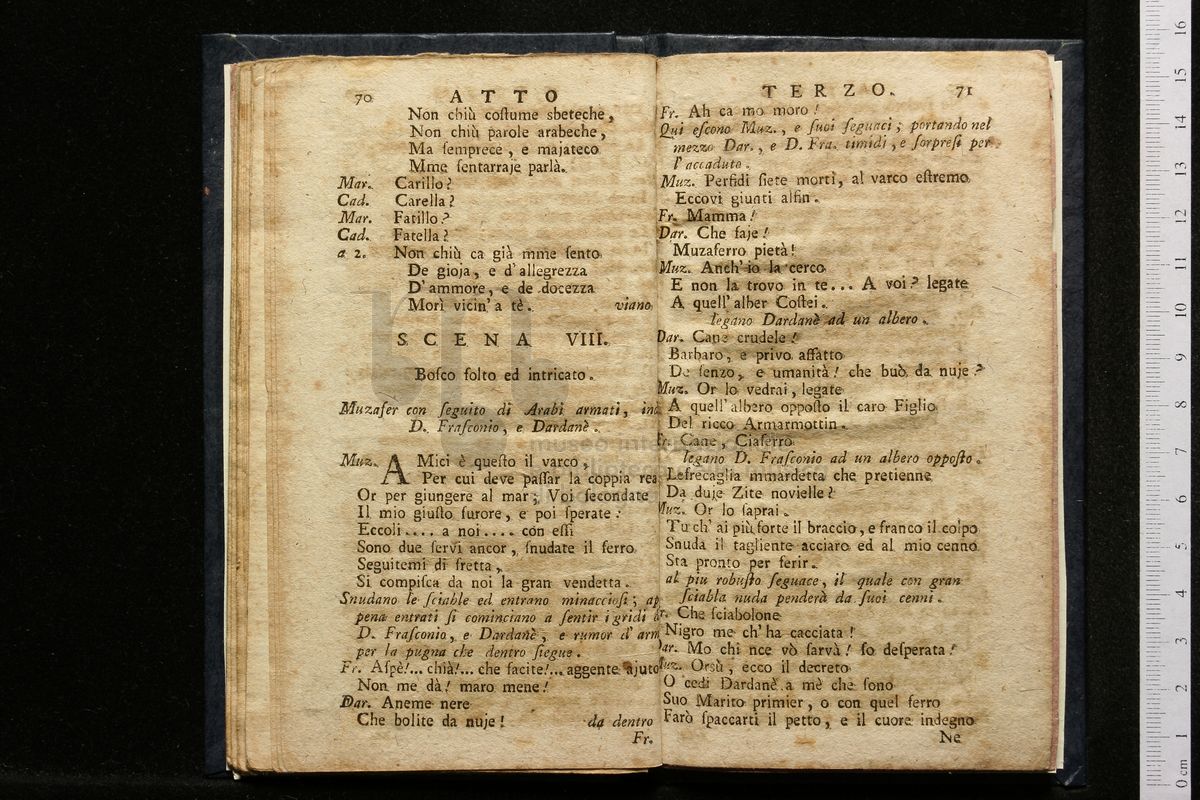 70 ATTO
Non chiù coſtume sbeteche,
Non chiù parole arabeche,
Ma ſemprece, e majateco
Mme ſentarraje parlà.
Mar. Carillo?
Cad. Carella?
Mar. Fatillo?
Cad. Fatella?
a 2. Non chiù ca già mme ſento
De gioja, e d'allegrezza
D'ammore, e de docezza
Morì vicin' a tè. viano
SCENA VIII.
Boſco folto ed intricato.
Muzafer con ſeguito di Arabi armati, ind
D. Fraſconio, e Dardanè.
Muz. AMici è queſto il varco,
Per cui deve paſſar la coppia rea
Or per giungere al mar; Voi ſecondate
Il mio giuſto furore, e poi ſperate:
Eccoli.... a noi.... con eſſi
Sono due ſervi ancor, ſnudate il ferro
Seguitemi di fretta,
Si compiſca da noi la gran vendetta.
Snudano le ſciable ed entrano minaccioſi; ap
pena entrati ſi cominciano a ſentir i gridi d
D. Fraſconio, e Dardanè, e rumor d' arm
per la pugna che dentro ſiegue.
Fr. Aſpè!... chià!... che facite!... aggente ajuto
Non me dà! maro mene!
Dar. Aneme nere
Che bolite da nuje! da dentro
Fr.
TERZO. 71
Fr. Ah ca mo moro!
Qui eſcono Muz., e ſuoi ſeguaci; portando nel
mezzo Dar., e D. Fra. timidi, e ſorpreſi per
l'accaduto.
Muz. Perfidi ſiete morti, al varco eſtremo
Eccovi giunti alfin.
Fr. Mamma!
Dar. Che faje!
Muzaferro pietà!
Muz. Anch' io la cerco
E non la trovo in te... A voi? legate
A quell' alber Coſtei.
legano Dardanè ad un albero.
Dar. Cane crudele!
Barbaro, e privo affatto
De ſenzo, e umanità! che buò da nuje?
Muz. Or lo vedrai, legate
A quell' albero oppoſto il caro Figlio
Del ricco Armarmottin.
Fr. Cane, Ciaferro
legano D. Fraſconio ad un albero oppoſto.
Leſrecaglia mmardetta che pretienne
Da duje Zite novielle?
Muz. Or lo ſaprai.
Tu ch' ai più forte il braccio, e franco il colpo
Snuda il tagliente acciaro ed al mio cenno
Sta pronto per ferir.
al piu robuſto ſeguace, il quale con gran
ſciabla nuda penderà da ſuoi cenni.
Fr. Che ſciabolone
Nigro me ch' ha cacciata!
Dar. Mo chi nce vò ſarvà! ſo deſperata!
Muz. Orsù, ecco il decreto
O cedi Dardanè a mè che ſono
Suo Marito primier, o con quel ferro
Farò ſpaccarti il petto, e il cuore indegno
Ne
0 cm 1 2 3 4 5 6 7 8 9 10 11 12 13 14 15 16